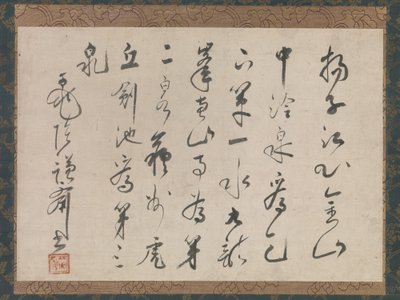 揚子江心金山
中泠泉為天
下第一水九龍
峯惠山寺為第
二泉蘇州虎
丘劍池為第三
泉
齋書